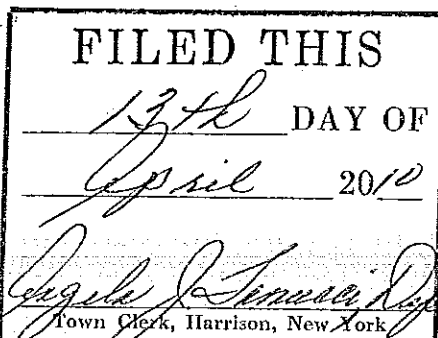 FILED THIS
13th DAY OF
April 2010
Angela J.
Town Clerk, Harrison, New York